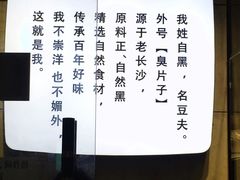 我姓自黑，名豆夫。
外号【臭片子】
源于老长沙，
原料正、自然黑
精选自然食材，
传承百年好味
我不崇洋 也不媚外，
这就是我。